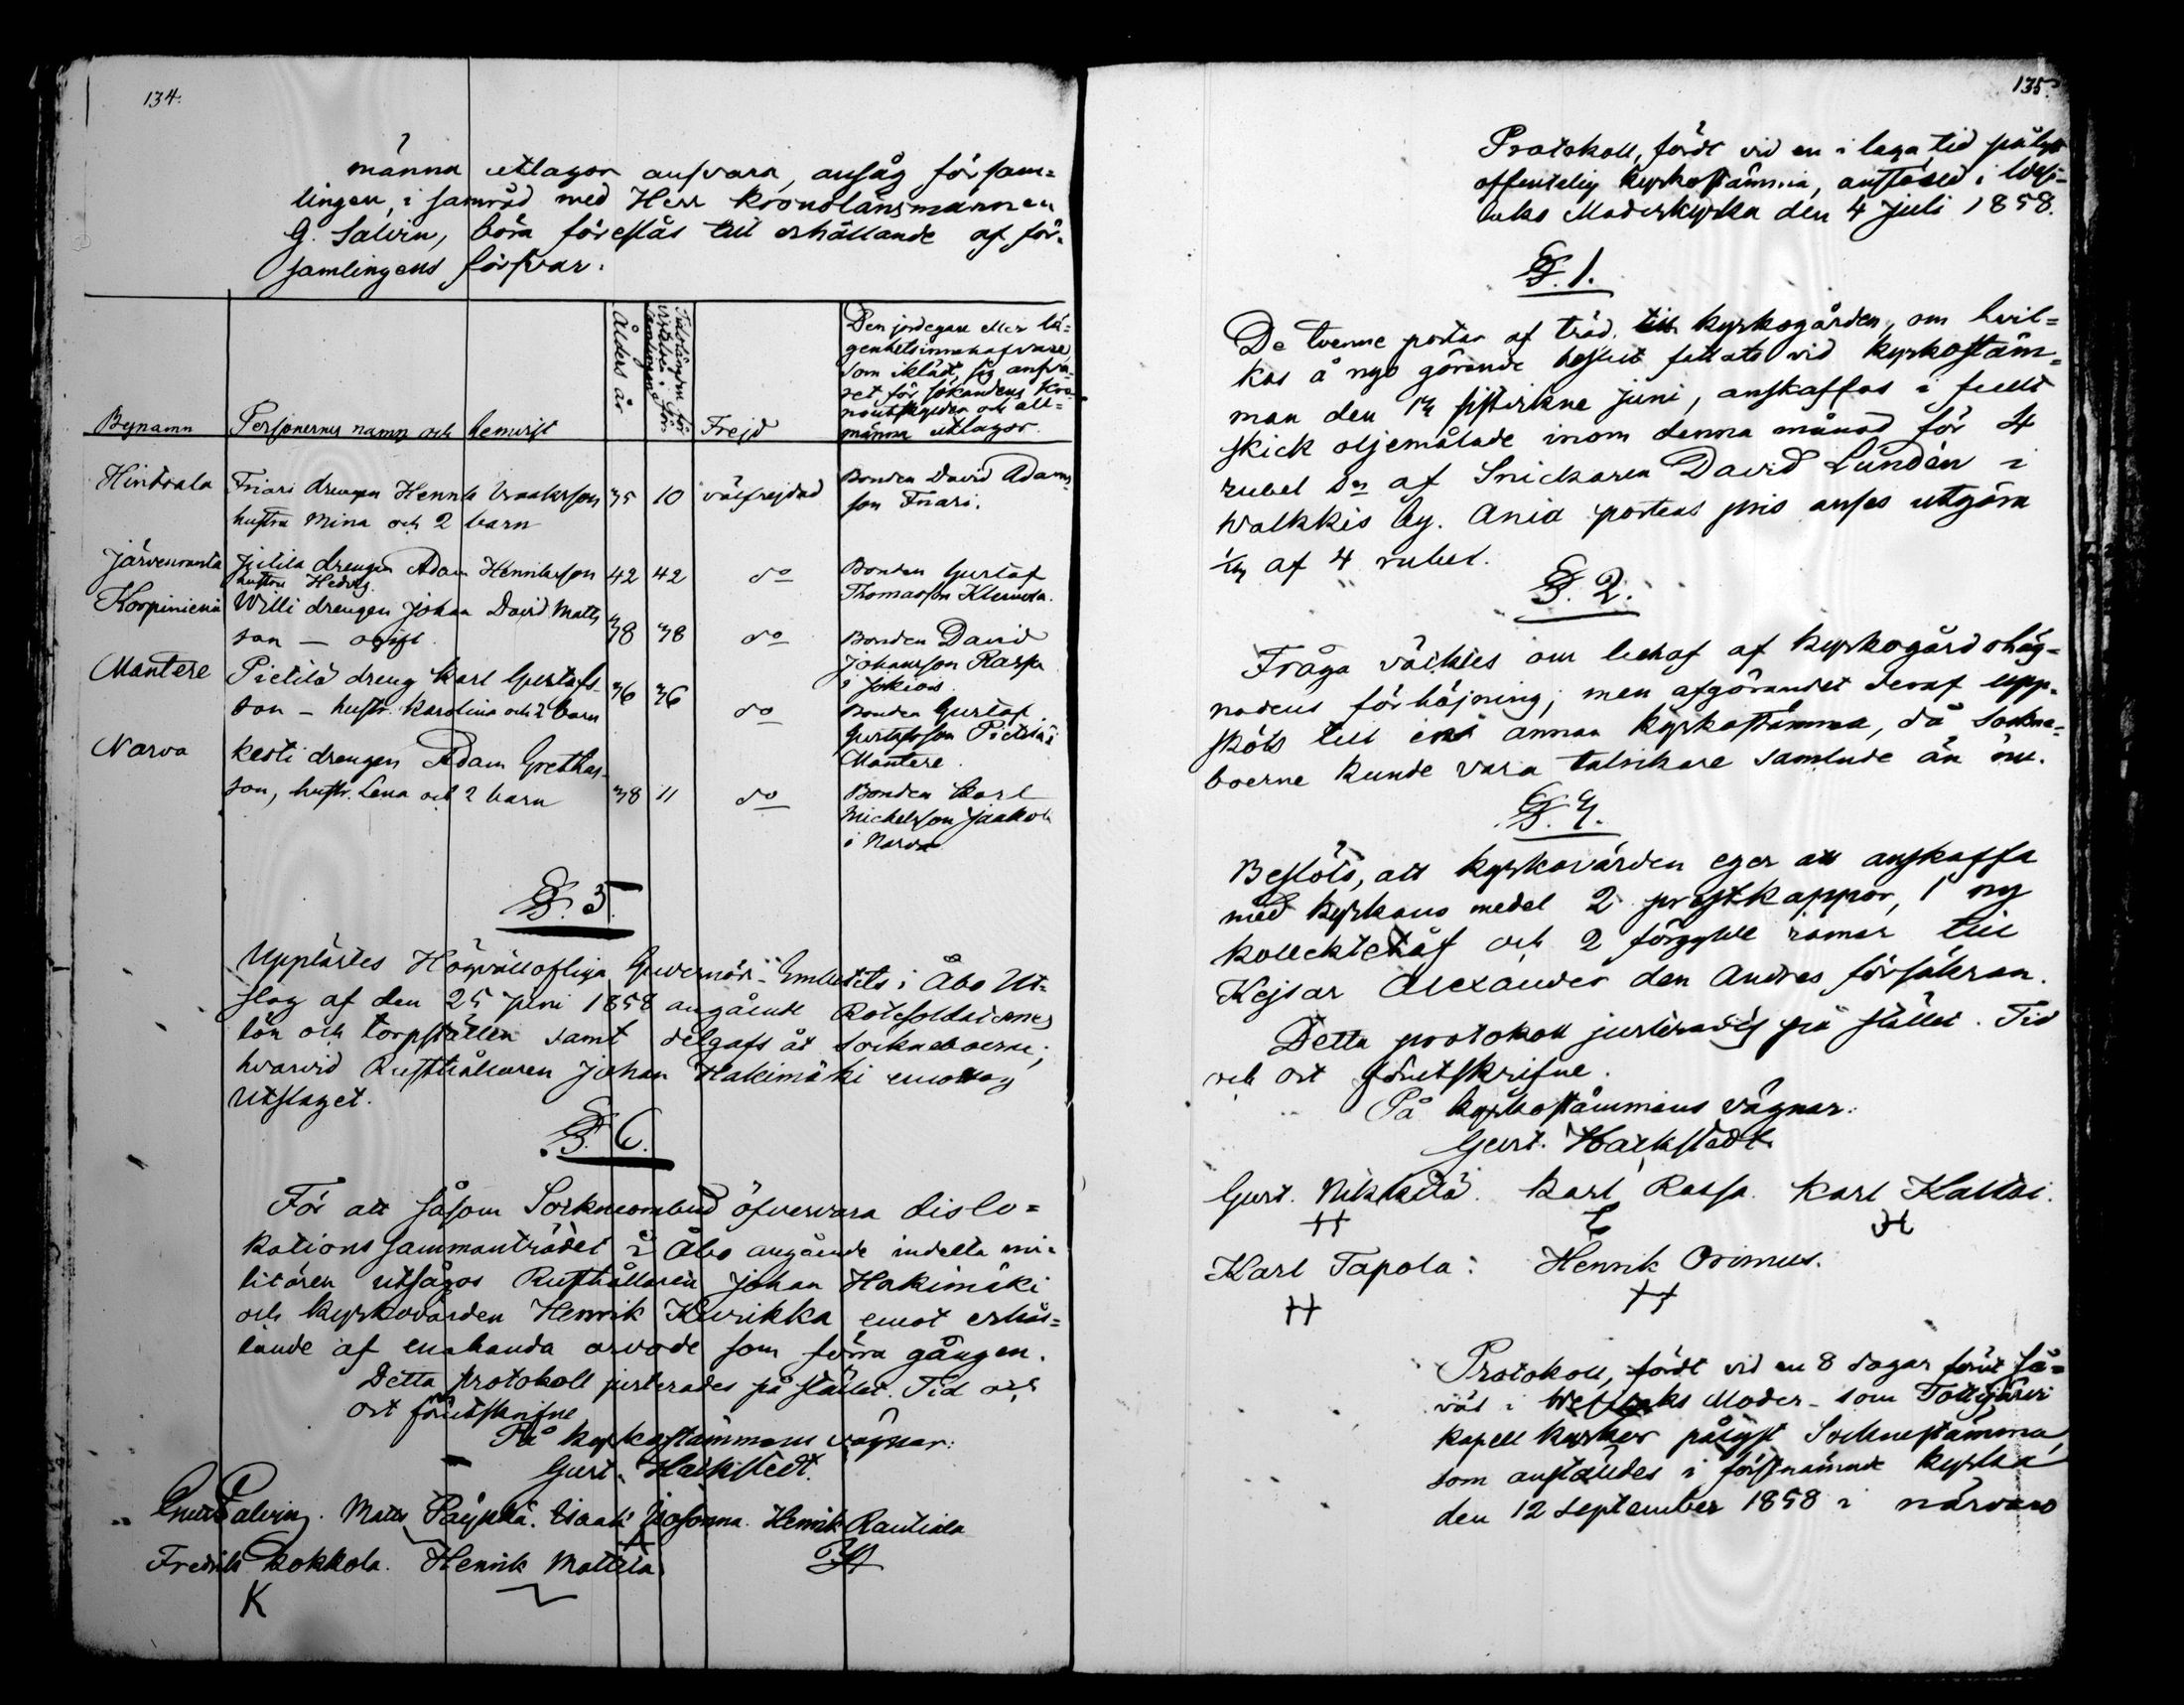 134.
männa utlagor ansvara, ansåg församm=
lingen, i samråd med Herr Kronolänsmannen
G. Salvin, böra föreslås till erhållande af för=
samlingens försvar.
Bynamn
Personernes namn och hemvist
Ålders år
Frejd
Den jordegare eller lä=
genhetsinnehafvare
som iklädt sig ansva=
ret för sökandens Kro=
noutskylder och all=
männa utlagor.
Hindvala Friari drengen Henrik Isaaksson 35 10 välfrejdad Bonden David Adams
hustru Mina och 2 barn son Friari.
Järvenranta Jutila drengen Adam Henriksson 42 42 do Bonden Gustaf
hustru Hedvig Thomasson Klemola.
Korpiniemi Willi drengen Johan David Matts
son — ogift. 38 38 do Bonden David
Johansson Raspa
i Jokiois.
Mantere Pietilä dreng Karl Gustafs
son — hustr. Karolina och 2 barn 36 36 do Bonden Gustaf
Gustafsson Pietilä i
Mantere.
Narva Kesti drengen Adam Grethas
son, hustr. Lena och 2 barn 38 11 do Bonden Karl
Michelsson Jaakola
i Narva
§. 5.
Upplästes Högvällofliga Guvernörs-Embetets i Åbo Ut=
slag af den 25 juni 1858 angående Rotesoldaternes
lön och torpställen samt delgafs åt Sockneboerne;
hvarvid Rusthållaren Johan Hakimäki emottog
Utslaget.
§. 6.
För att såsom Sockneombud öfvervara dislo=
kations sammanträdet i Åbo angående indelta mi=
litären utsågos Rusthållaren Johan Hakimäki
och kyrkovärden Henrik Kurikka emot erhål=
lande af enahanda arvode som förra gången.
Detta protokoll justerades på stället. Tid och
ort förutskrifne
På kyrkostämmans vägnar:
Gust. Hackstedt.
Salvin. Matts Päyhlä. Isaak Henrik Rautiala
Fredrik Kokkola. Henrik Mattila.
K
135.
Protokoll, fördt vid en i laga tid pålyst
offentelig kyrkostämma, anstäld i Wesi=
laks Moderkyrka den 4 Juli 1858.
§. 1.
De tvenne portar af träd till kyrkogården, om hvil=
kas å nyo görande beslut fattats vid kyrkostäm=
man den 13 sistlidne juni, anskaffas i fullt
skick oljemålade inom denna månad för 4
rubel Sr af Snickaren David Lundén i
Walkkis by. Ania portens pris anses utgöra
1/3 af 4 rubel.
§. 2.
Fråga väcktes om behof af kyrkogårdshäg=
nadens förhöjning; men afgörandet deraf upp=
sköts till en annan kyrkostämma, då sockne=
boerne kunde vara talrikare samlade än nu.
§. 3.
Beslöts, att kyrkovärden eger att anskaffa
med kyrkans medel 2 prestkappor, 1 ny
kollekthåf och 2 förgyllde ramar till
Kejsar Alexander den Andres försäkran.
Detta protokoll justerades på stället. Tid
och ort förutskrifne.
På kyrkostämmans vägnar:
Gust. Hackstedt.
Gust. Nikkilä. Karl Rassa. Karl Kaltsi.
Karl Tapola: Henrik Orimus.
Protokoll, fördt vid en 8 dagar förut så=
väl i Wesilaks Moder- som Tottijärvi
kapell kyrkor pålyst Socknestämma,
som anstäldes i förstnämnde kyrka
den 12 September 1858 i närvaro